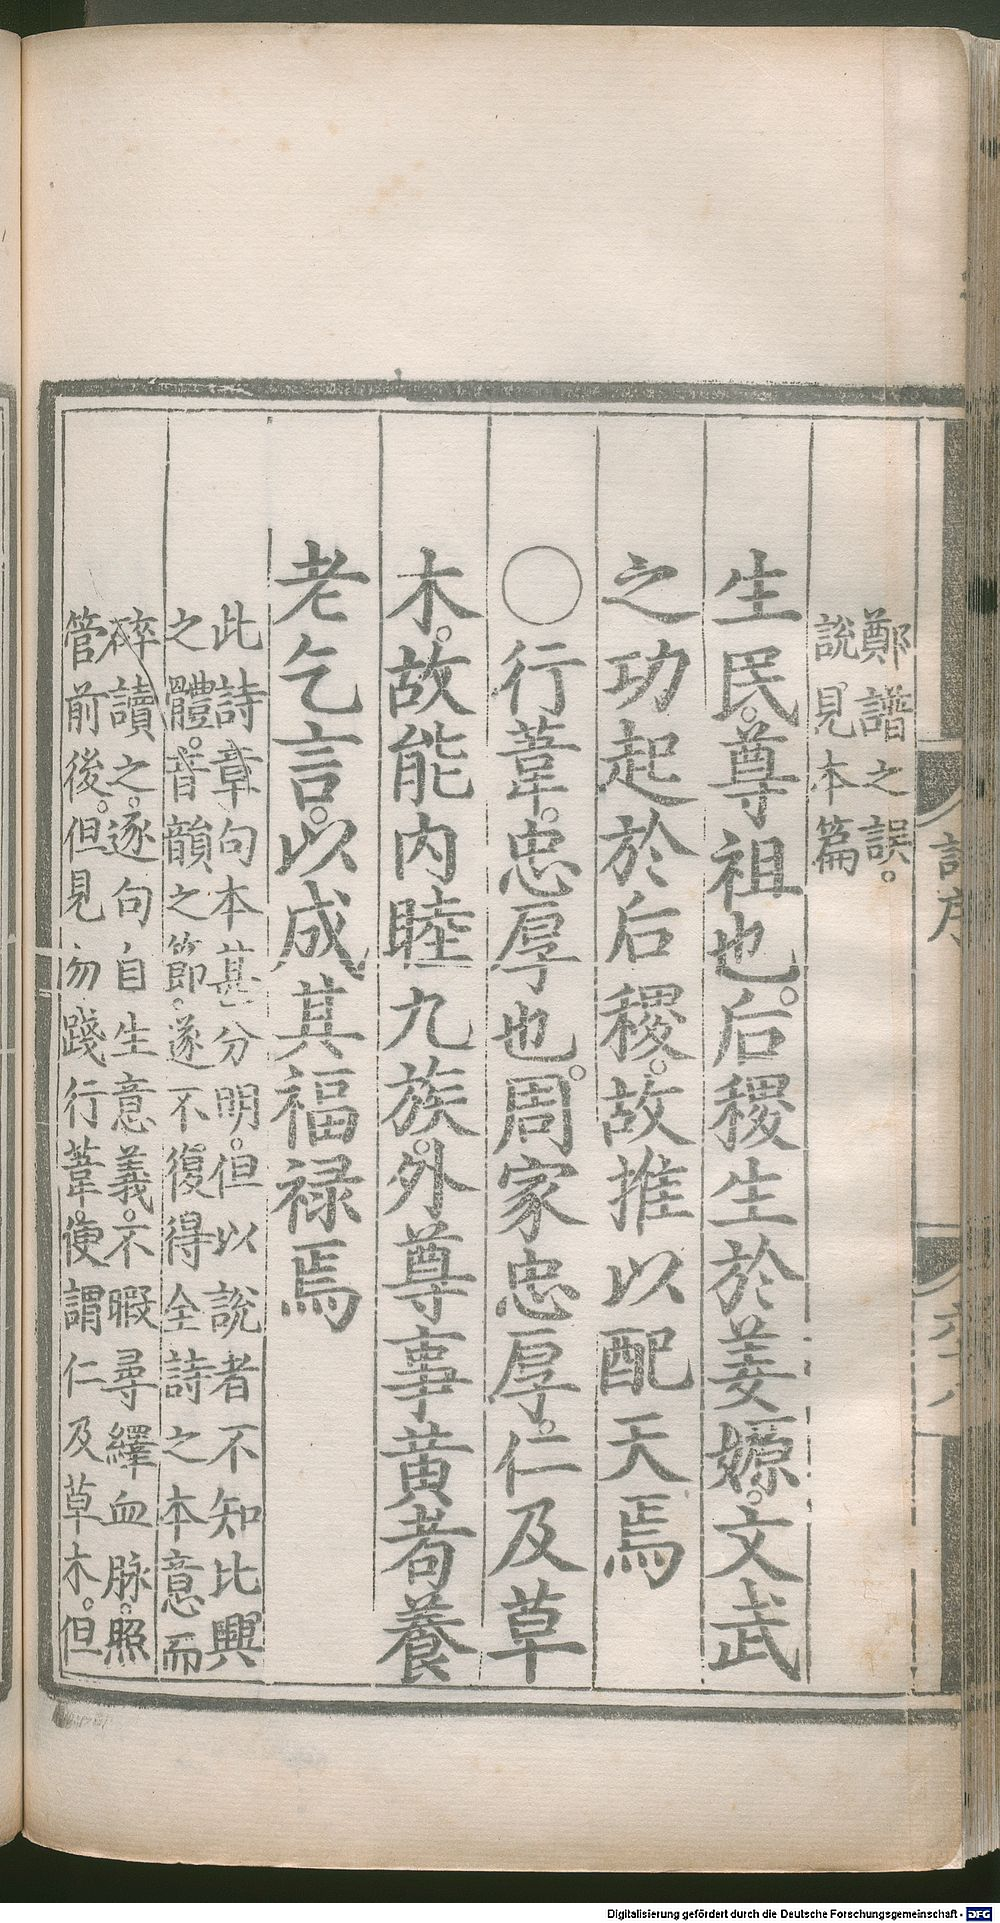 鄭譜之誤。
說見本篇
生民。尊祖也。后稷生於姜嫄。文武
之功起於后稷。故推以配天焉
○行葦。忠厚也。周家忠厚。仁及草
木。故能內睦九族。外尊事黃耉養
老乞言。以成其福禄焉
此詩章句本甚分明。但以說者不知比興
之體。音韻之節。遂不復得全詩之本意而
碎讀之。逐句自生意義。不暇尋繹血脉。照
管前後。但見勿踐行葦。便謂仁及草木。但
詩序
Digitalisierung gefördert durch die Deutsche Forschungsgemeinschaft - DFG